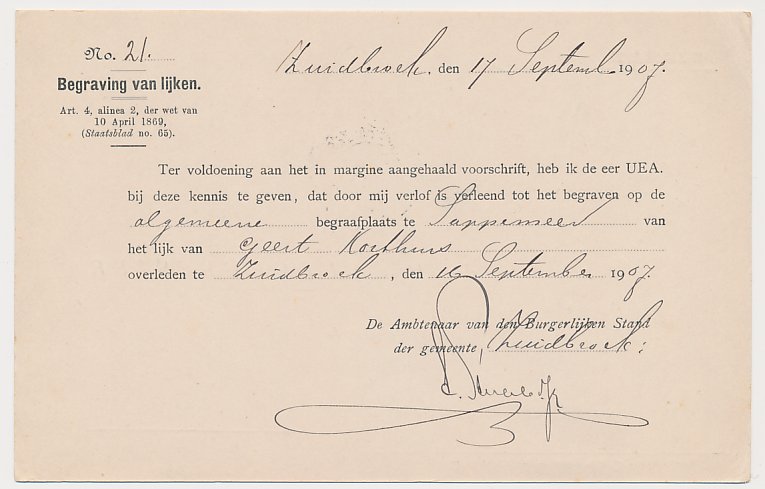 No. 21.
Begraving van lijken.
Art. 4, alinea 2, der wet van
10 April 1869,
(Staatsblad no. 65).
Zuidbroek, den 17 Septemb. 1907.
Ter voldoening aan het in margine aangehaald voorschrift, heb ik de eer UEA.
bij deze kennis te geven, dat door mij verlof is verleend tot het begraven op de
algemeene begraafplaats te Sappemeer van
het lijk van Geert Korthuis
overleden te Zuidbroek, den 16 September 1907.
De Ambtenaar van den Burgerlijken Stand
der gemeente, Zuidbroek;